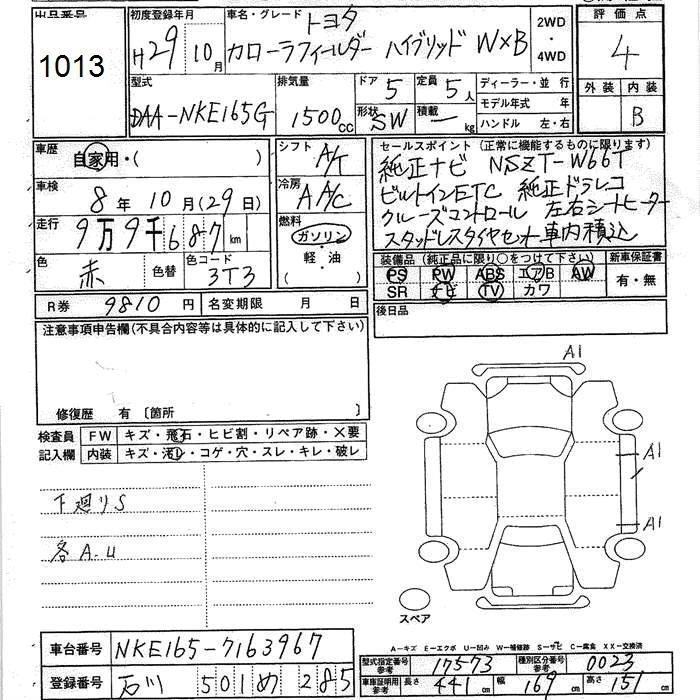 出品番号
1013
初度登録年月
H29年10月
車名・グレード
トヨタ
カローラフィールダー ハイブリッド W×B
2WD
・
4WD
評価点
4
外装 内装
B
型式
DAA-NKE165G
排気量
1500cc
ドア 5
形状 SW
定員 5人
積載 ー kg
ディーラー・並行
モデル年式 年
ハンドル 左・右
車歴
自家用・( )
車検
8年10月(29日)
走行
9万9千687km
色
赤
色替
色コード
3T3
シフト
A/T
冷房
AAC
燃料
ガソリン
・
軽・油
( )
セールスポイント (正常に機能するものに限ります)
純正ナビ NSZT-W66T
ビルトインETC 純正ドラレコ
クルーズコントロール 左右シートヒーター
スタッドレスタイヤセット車内積込
装備品(純正品に限り○をつけて下さい)
PS PW ABS エアB AW
SR ナビ TV カワ
新車保証書
有・無
R券 9810円 名変期限 月 日
後日品
注意事項申告欄(不具合内容等は具体的に記入して下さい)
修復歴 有〔箇所 〕
検査員
記入欄
FW キズ・飛石・ヒビ割・リペア跡・×要
内装 キズ・汚レ・コゲ・穴・スレ・キレ・破レ
下廻りS
各A.U
A1
A1
A1
スペア
A-キズ E-エクボ U-凹み W-補修跡 S-サビ C-腐食 XX-交換済
車台番号 NKE165-7163967
登録番号 石川 501 め 285
型式指定番号
参考
17573
種別区分番号
参考
0023
車庫証明用
参考
長さ 441cm 幅 169cm 高さ 151cm